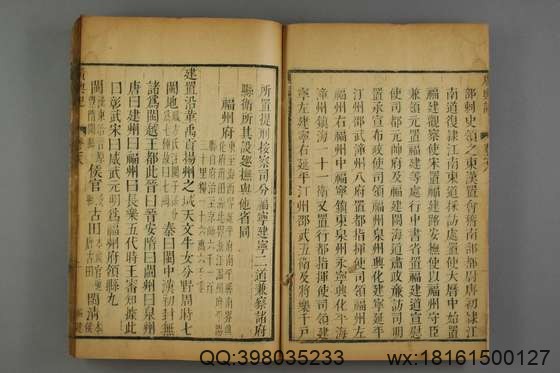 部刺史領之東漢置會稽南部都尉唐初隸江
南道復隸江南東道採訪處置使大曆中始置
福建觀察使宋置福建路安撫使以福州守臣
兼領元置福建等處行中書省置福建道宣慰
使司都元帥府及福建閩海道肅政廉訪司明
置承宣布政使司領福州泉州興化建寧延平
汀州邵武漳州八府置都指揮使司領福州左
福州右福州中福寧鎮東泉州永寧興化平海
漳州鎮海一十一衛又置行都指揮使司領建
寧左建寧右延平汀州邵武五衛及將樂千戶
所置提刑按察司分福寧建寧二道兼察諸府
縣衛所其設總撫與他省同
福州府
建置沿革禹貢揚州之域天文牛女分野周時七
閩地 秦曰閩中漢初封無
諸為閩越王都此晉曰晉安隋曰閩州曰泉州
唐曰建州曰福州曰長樂五代時王審知據此
曰彰武宋曰威武元明為福州府領縣九
閩 侯官 古田 閩清
QQ:398035233
wx:18161500127